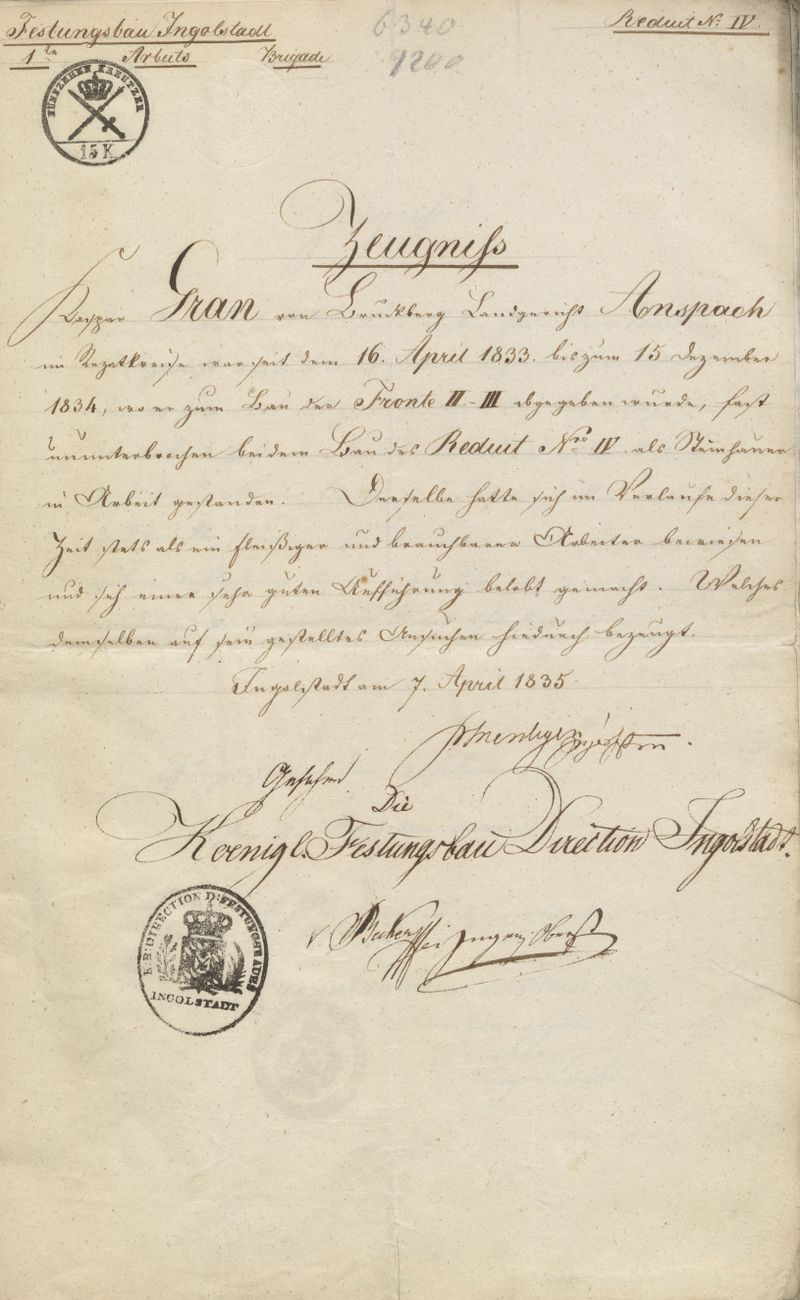 Festungsbau Ingolstadt
6340
Reduit Nº IV.
1te Arbeits Brigade
9200
FÜNFZEHEN KREUTZER
15 K
Zeugniss
Kaspar Gran von Bruckberg Landgerichts Anspach
im Rezatkreise war seit dem 16. April 1833. bis zum 15 Dezember
1834, wo er zum Bau der Fronte II-III abgegeben wurde, fast
ununterbrochen bei dem Bau des Reduit Nro IV. als Steinhauer
in Arbeit gestanden. Derselbe hatte sich im Verlaufe dieser
Zeit stets als ein fleißiger und brauchbarer Arbeiter bewiesen
und sich einer sehr guten Aufführung belobt gemacht. Welches
demselben auf sein gestelltes Ansuchen hiedurch bezeugt.
Ingolstadt am 7. April 1835.
Gesehen
Die
Koenigl. Festungsbau Direction Ingolstadt.
K. B. DIRECTION D. FESTUNGSBAUES
INGOLSTADT
Ingen. Oberst